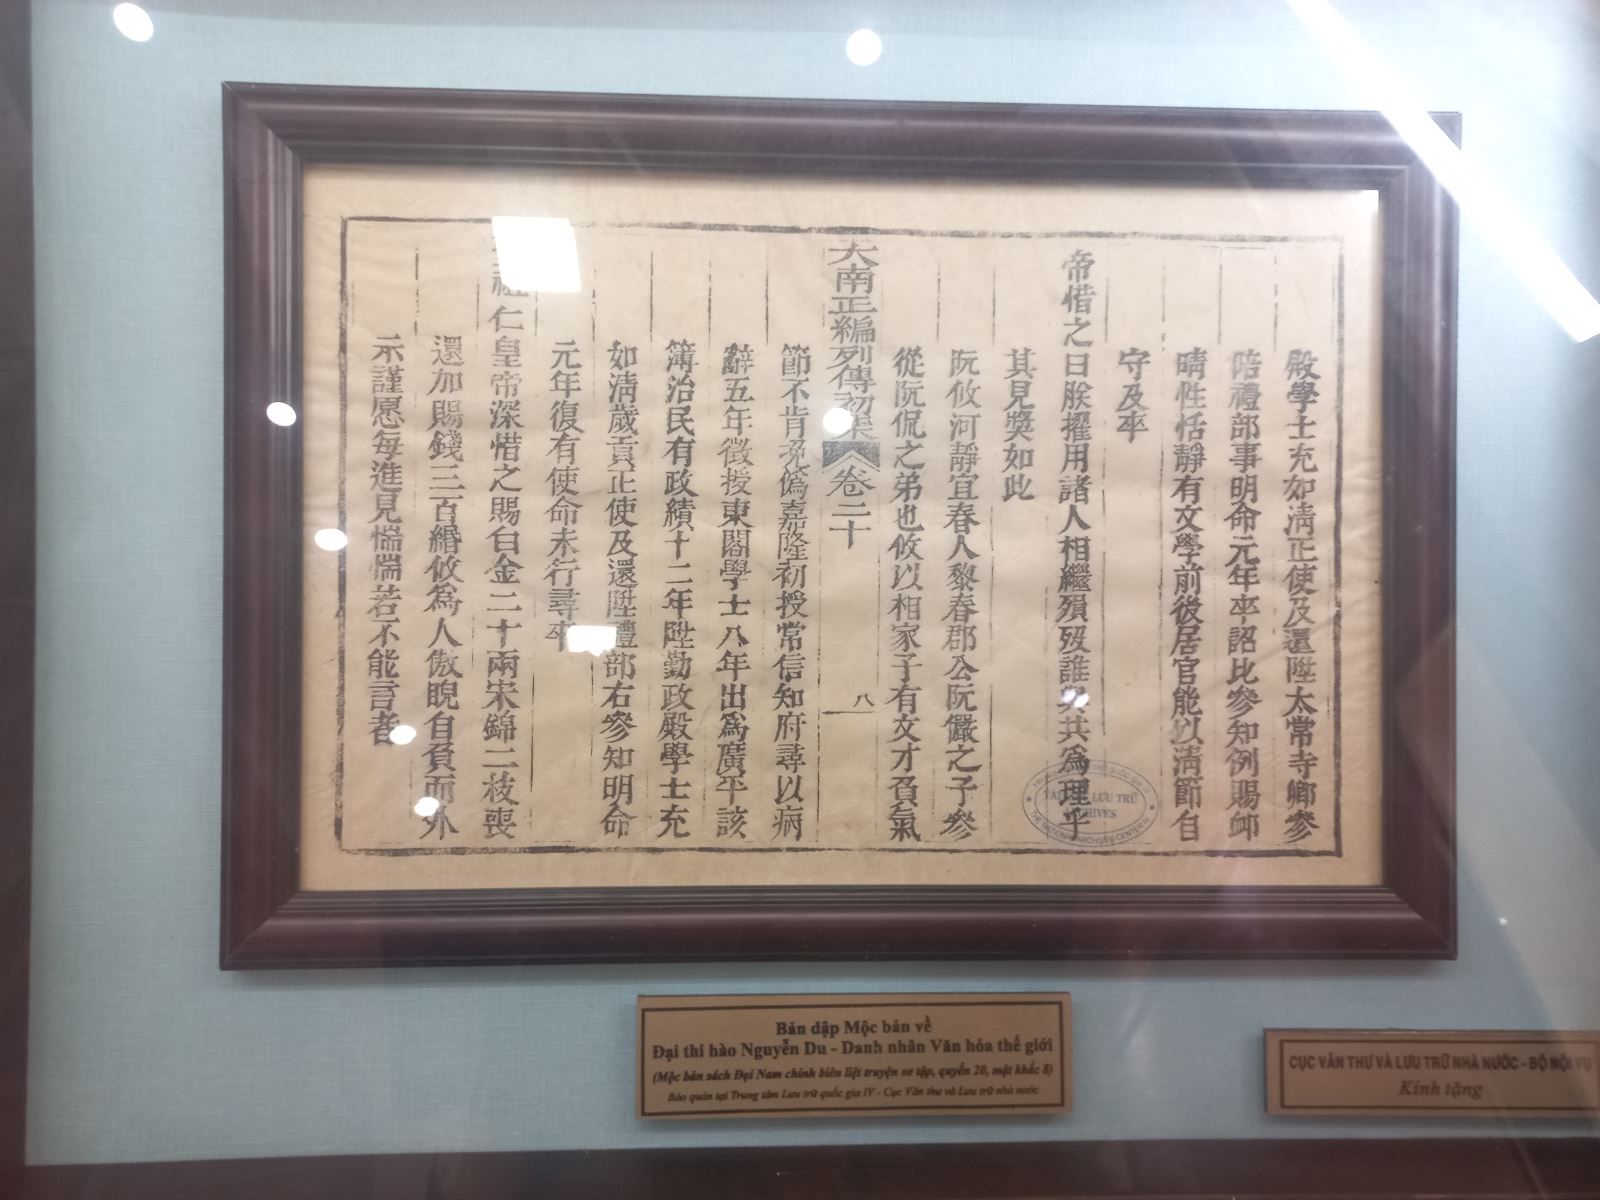 殿學士充如淸正使及還陞太常寺卿參
陪禮部事明命元年卒詔比參知例賜卹
晴性恬靜有文學前後居官能以淸節自
守及卒
帝惜之曰朕擢用諸人相繼殞歿誰與共爲理乎
其見獎如此
阮攸河靜宜春人黎春郡公阮儼之子參
從阮侃之弟也攸以相家子有文才負氣
大南正編列傳初集 卷二十
八
節不肯 僞嘉隆初授常信知府尋以病
辭五年徵授東閣學士八年出爲廣平該
簿治民有政績十二年陞勤政殿學士充
如淸歲貢正使及還陞禮部右參知明命
元年復有使命未行尋卒
祖仁皇帝深惜之賜白金二十兩宋錦二枝喪
還加賜錢三百緡攸爲人傲睨自負而外
示謹愿每進見惴惴若不能言者
LƯU TRỮ
ARCHIVES
Bản dập Mộc bản về
Đại thi hào Nguyễn Du - Danh nhân Văn hóa thế giới
(Mộc bản sách Đại Nam chính biên liệt truyện sơ tập, quyển 20, mặt khắc 8)
Bảo quản tại Trung tâm Lưu trữ quốc gia IV - Cục Văn thư và Lưu trữ nhà nước
CỤC VĂN THƯ VÀ LƯU TRỮ NHÀ NƯỚC - BỘ NỘI VỤ
Kính tặng